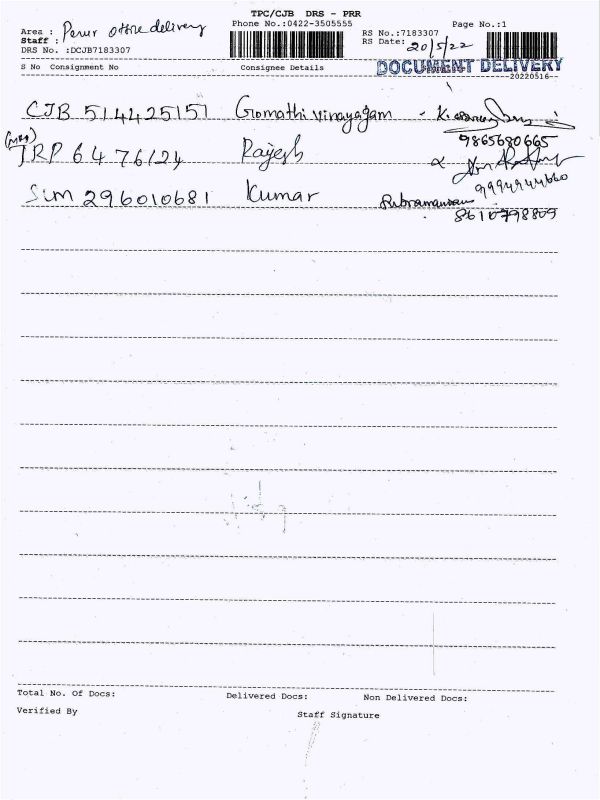 TPC/CJB DRS - PRR
Phone No.:0422-3505555
Page No.:1
Area : Perur office delivery
Staff :
DRS No. :DCJB7183307
RS No.:7183307
RS Date: 20/5/22
DOCUMENT DELIVERY
20220516
S No Consignment No Consignee Details
CJB 514425157 Gomathi vinayagam -
9865680665
(MRS)
TRP 6476124 Rajesh
9994944660
Sum 296010681 Kumar Subramaniam
8610798809
Total No. Of Docs: Delivered Docs: Non Delivered Docs:
Verified By Staff Signature